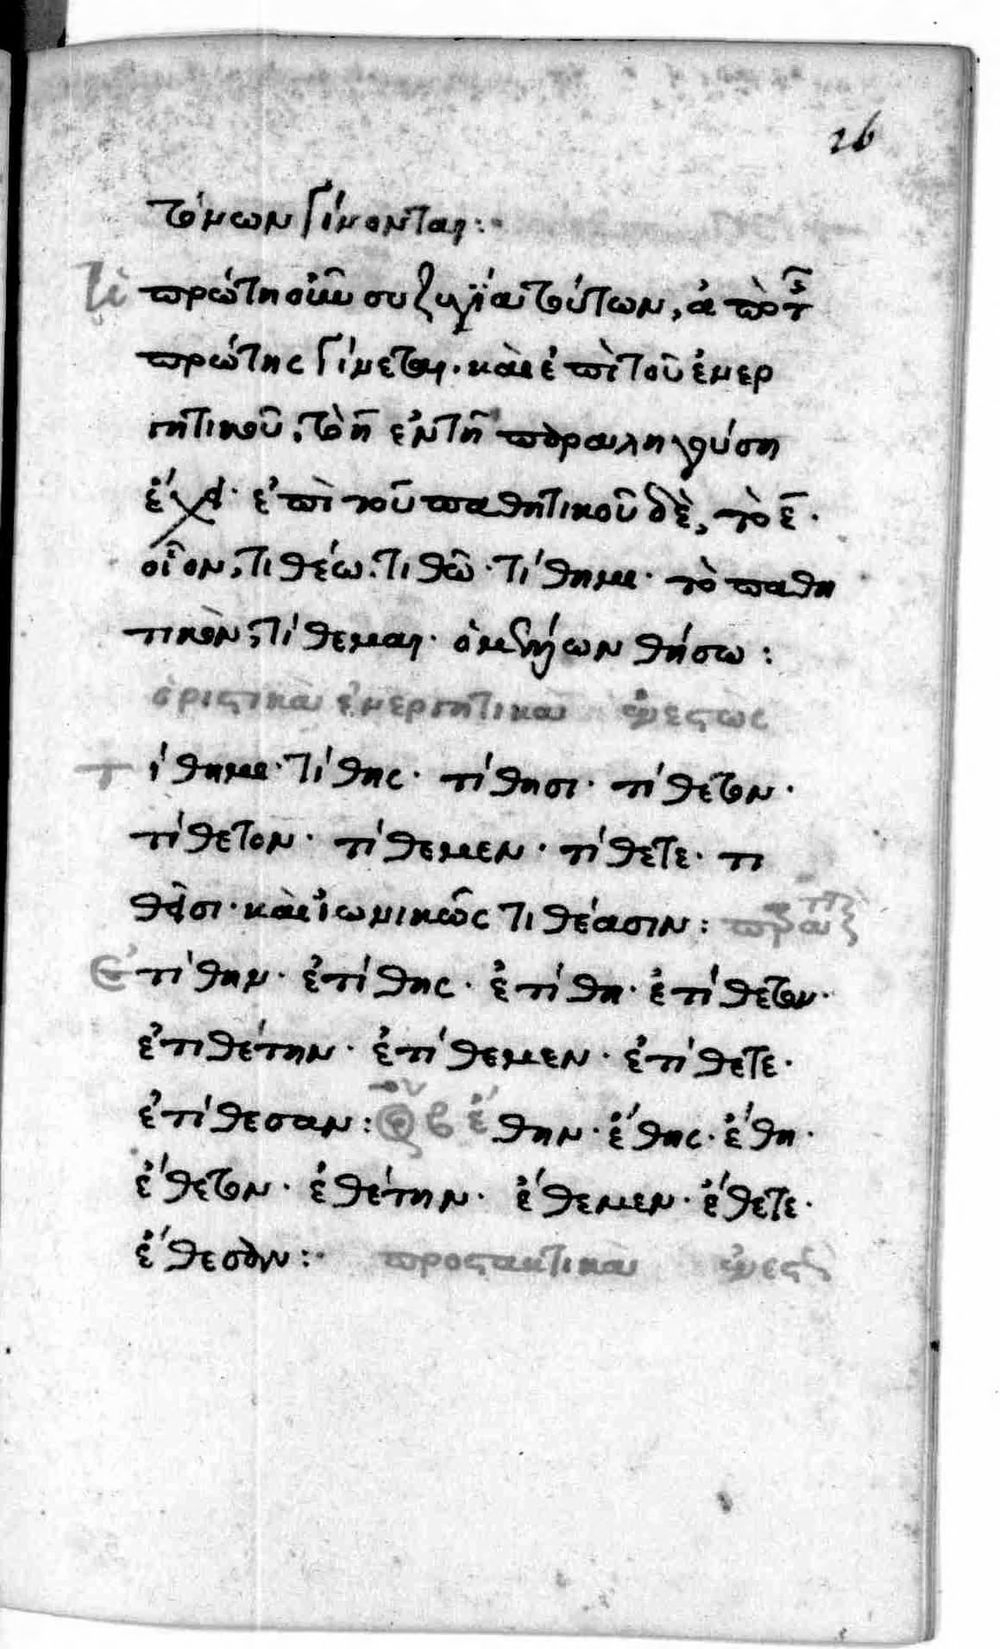 26
τόνων γίνονται:
πρώτη οὖν συζυγία τούτων, ἀπὸ τ
πρώτης γίνεται. καὶ ἐπὶ τοῦ ἐνερ
γητικοῦ, τὸ η ἐν τῇ παραληγούση
ἔχει· ἐπὶ τοῦ παθητικοῦ δὲ, τὸ ε.
οἷον, τιθέω. τιθῶ· τίθημι· τὸ παθη
τικὸν, τίθεμαι· ὁ μέλλων θήσω:
ὁριστικὰ ἐνεργητικὰ ἐνεστὼς
τίθημι· τίθης· τίθησι· τίθετον·
τίθετον· τίθεμεν· τίθετε· τι
θεῖσι· καὶ ἰωνικῶς τιθέασιν: παρα
Ετίθην· ἐτίθης· ἐτίθη· ἐτίθετον·
ἐτιθέτην· ἐτίθεμεν· ἐτίθετε·
ἐτίθεσαν: β ἔθην· ἔθης· ἔθη·
ἔθετον· ἐθέτην· ἔθεμεν· ἔθετε·
ἔθεσαν: προστακτικὰ ἐνεστ